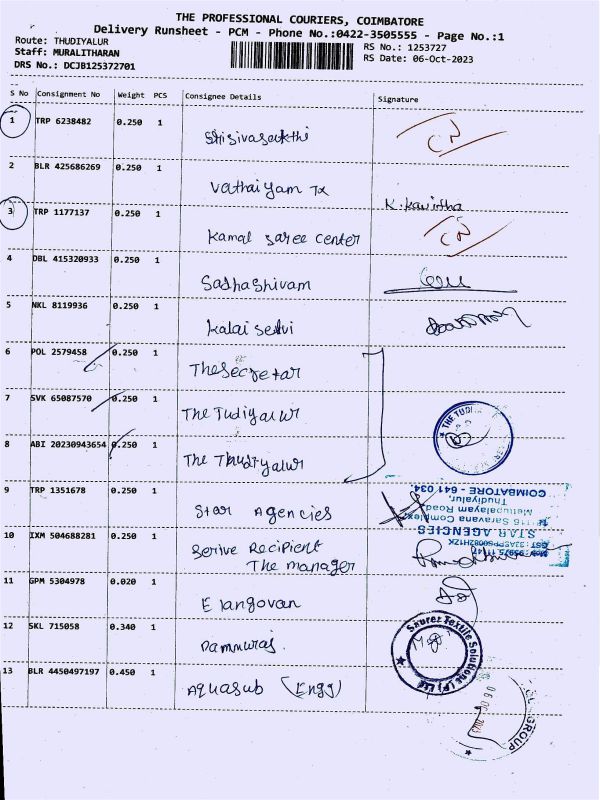 THE PROFESSIONAL COURIERS, COIMBATORE
Delivery Runsheet - PCM - Phone No.:0422-3505555 - Page No.:1
Route: THUDIYALUR
RS No.: 1253727
Staff: MURALITHARAN
RS Date: 06-Oct-2023
DRS No.: DCJB125372701
S No Consignment No Weight PCS Consignee Details Signature
1 TRP 6238482 0.250 1
Shisivasakthi
CN
2 BLR 425686269 0.250 1
Vathaiyam Tx
K. Kavitha
3 TRP 1177137 0.250 1
Kamal Saree Center
CN
4 DBL 415320933 0.250 1
Sadhashivam
5 NKL 8119936 0.250 1
Kalai Selvi
6 POL 2579458 0.250 1
The Secretar
7 SVK 65087570 0.250 1
The Tudiyalur
THE TUDI
8 ABI 20230943654 0.250 1
The Thudiyalur
9 TRP 1351678 0.250 1
Star Agencies
STAR AGENCIES
116 Saravana Complex
Mettupalayam Road
Thudiyalur,
COIMBATORE - 641 034.
10 IXM 504688281 0.250 1
Serive Recipient
The manager
11 GPM 5304978 0.020 1
Elangovan
12 SKL 715058 0.340 1
Saurer Textile Solutions (P) Ltd
13 BLR 4450497197 0.450 1
Aquasub (Engg)
06 OCT 2023
GROUP